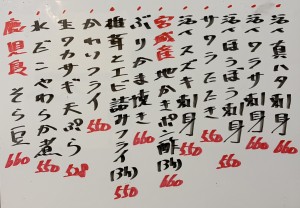 活〆真ハタ刺身 660
刺身 660
活〆ほうぼう刺身 550
サワラたたき 550
活〆スズキ刺身
宮城産 地かきポン酢(3ヶ) 660
ぶりかま焼き 660
椎茸とエビ詰みフライ(3ヶ) 550
かわりフライ 550
生ワカサギ天ぷら 528
水だこやわらか煮 550
鹿児島 そら豆 660